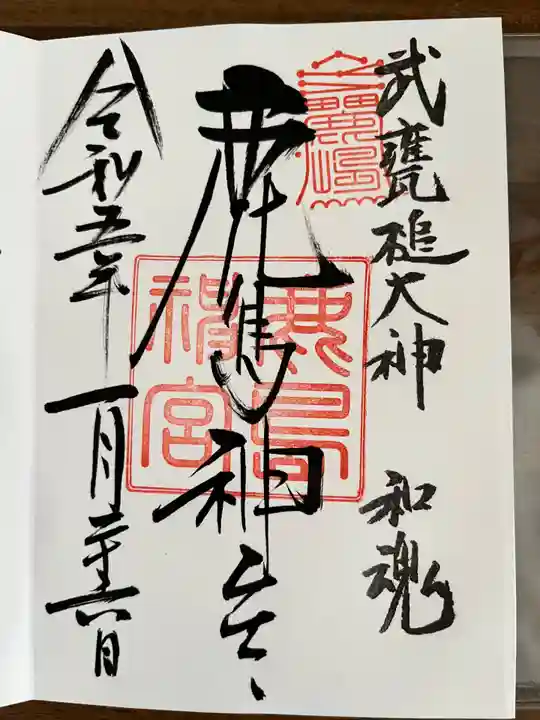 武甕槌大神　和魂
鹿島神宮
鹿島神宮
令和五年一月二十六日